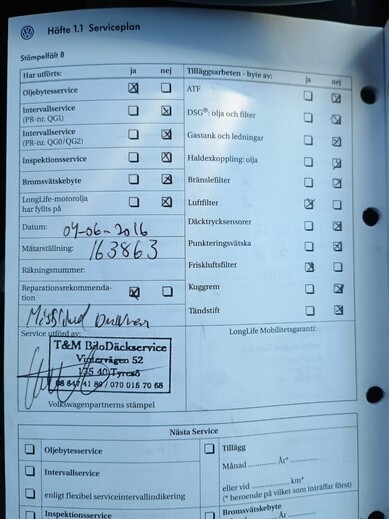 Häfte 1.1 Serviceplan
Stämpelfält 8
Har utförts: ja nej
Oljebytesservice
Intervallservice
(PR-nr. QG1)
Intervallservice
(PR-nr. QG0/QG2)
Inspektionsservice
Bromsvätskebyte
LongLife-motorolja
har fyllts på
Datum: 04-06-2016
Mätarställning: 163863
Räkningsnummer:
Reparationsrekommenda-
tion
Service utförd av:
T&M BiloDäckservice
Vintervägen 52
135 40 Tyresö
Volkswagenpartnerns stämpel
Tilläggsarbeten - byte av: ja nej
ATF
DSG®: olja och filter
Gastank och ledningar
Haldexkoppling: olja
Bränslefilter
Luftfilter
Däcktryckssensorer
Punkteringsvätska
Friskluftsfilter
Kuggrem
Tändstift
LongLife Mobilitetsgaranti:
Nästa Service
Oljebytesservice
Intervallservice
enligt flexibel serviceintervallindikering
Inspektionsservice
Tillägg
Månad ............ År* ............
eller vid ............ km*
(* beroende på vilket som inträffar först)
Bromsvätskebyte